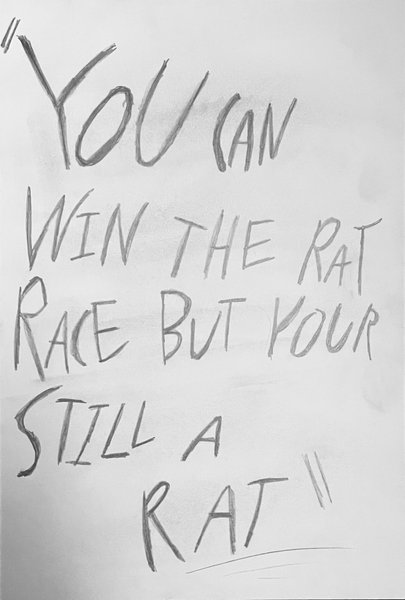 "YOU CAN
WIN THE RAT
RACE BUT YOUR
STILL A
RAT"